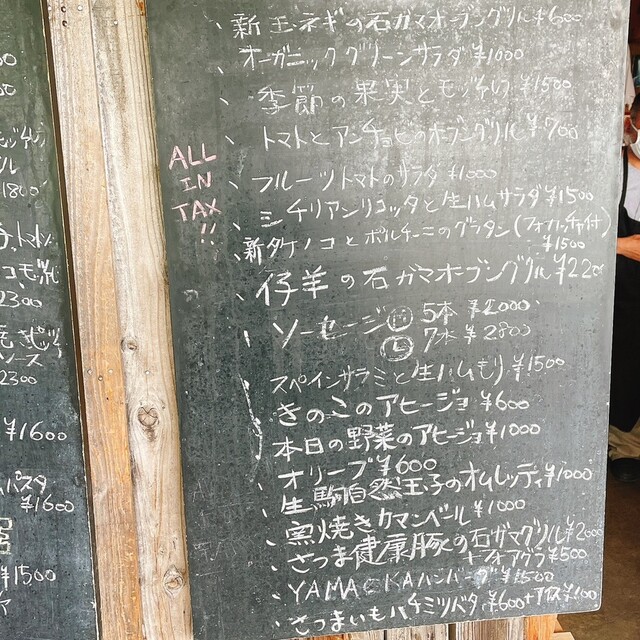 新玉ネギの石ガマオーブングリル ¥600
オーガニックグリーンサラダ ¥1000
季節の果実とモッツァレラ ¥1500
トマトとアンチョビのオーブングリル ¥700
ALL
IN
TAX
!!
フルーツトマトのサラダ ¥1000
シチリアンリコッタと生ハムサラダ ¥1500
新タケノコとポルチーニのグラタン(フォカッチャ付)
¥1500
仔羊の石ガマオーブングリル ¥2200
ソーセージ 5本 ¥2000
7本 ¥2800
スペインサラミと生ハムもり ¥1500
きのこのアヒージョ ¥600
本日の野菜のアヒージョ ¥1000
オリーブ ¥600
生駒自然玉子のオムレッティ ¥1000
窯焼きカマンベール ¥1000
さつま健康豚の石ガマグリル
+フォアグラ ¥500
YAMAOKAハンバーグ ¥1500
さつまいもハチミツバタ ¥600+アイス ¥100
1800
2300
ソース
2300
¥1600
パスタ
¥1600
¥1500